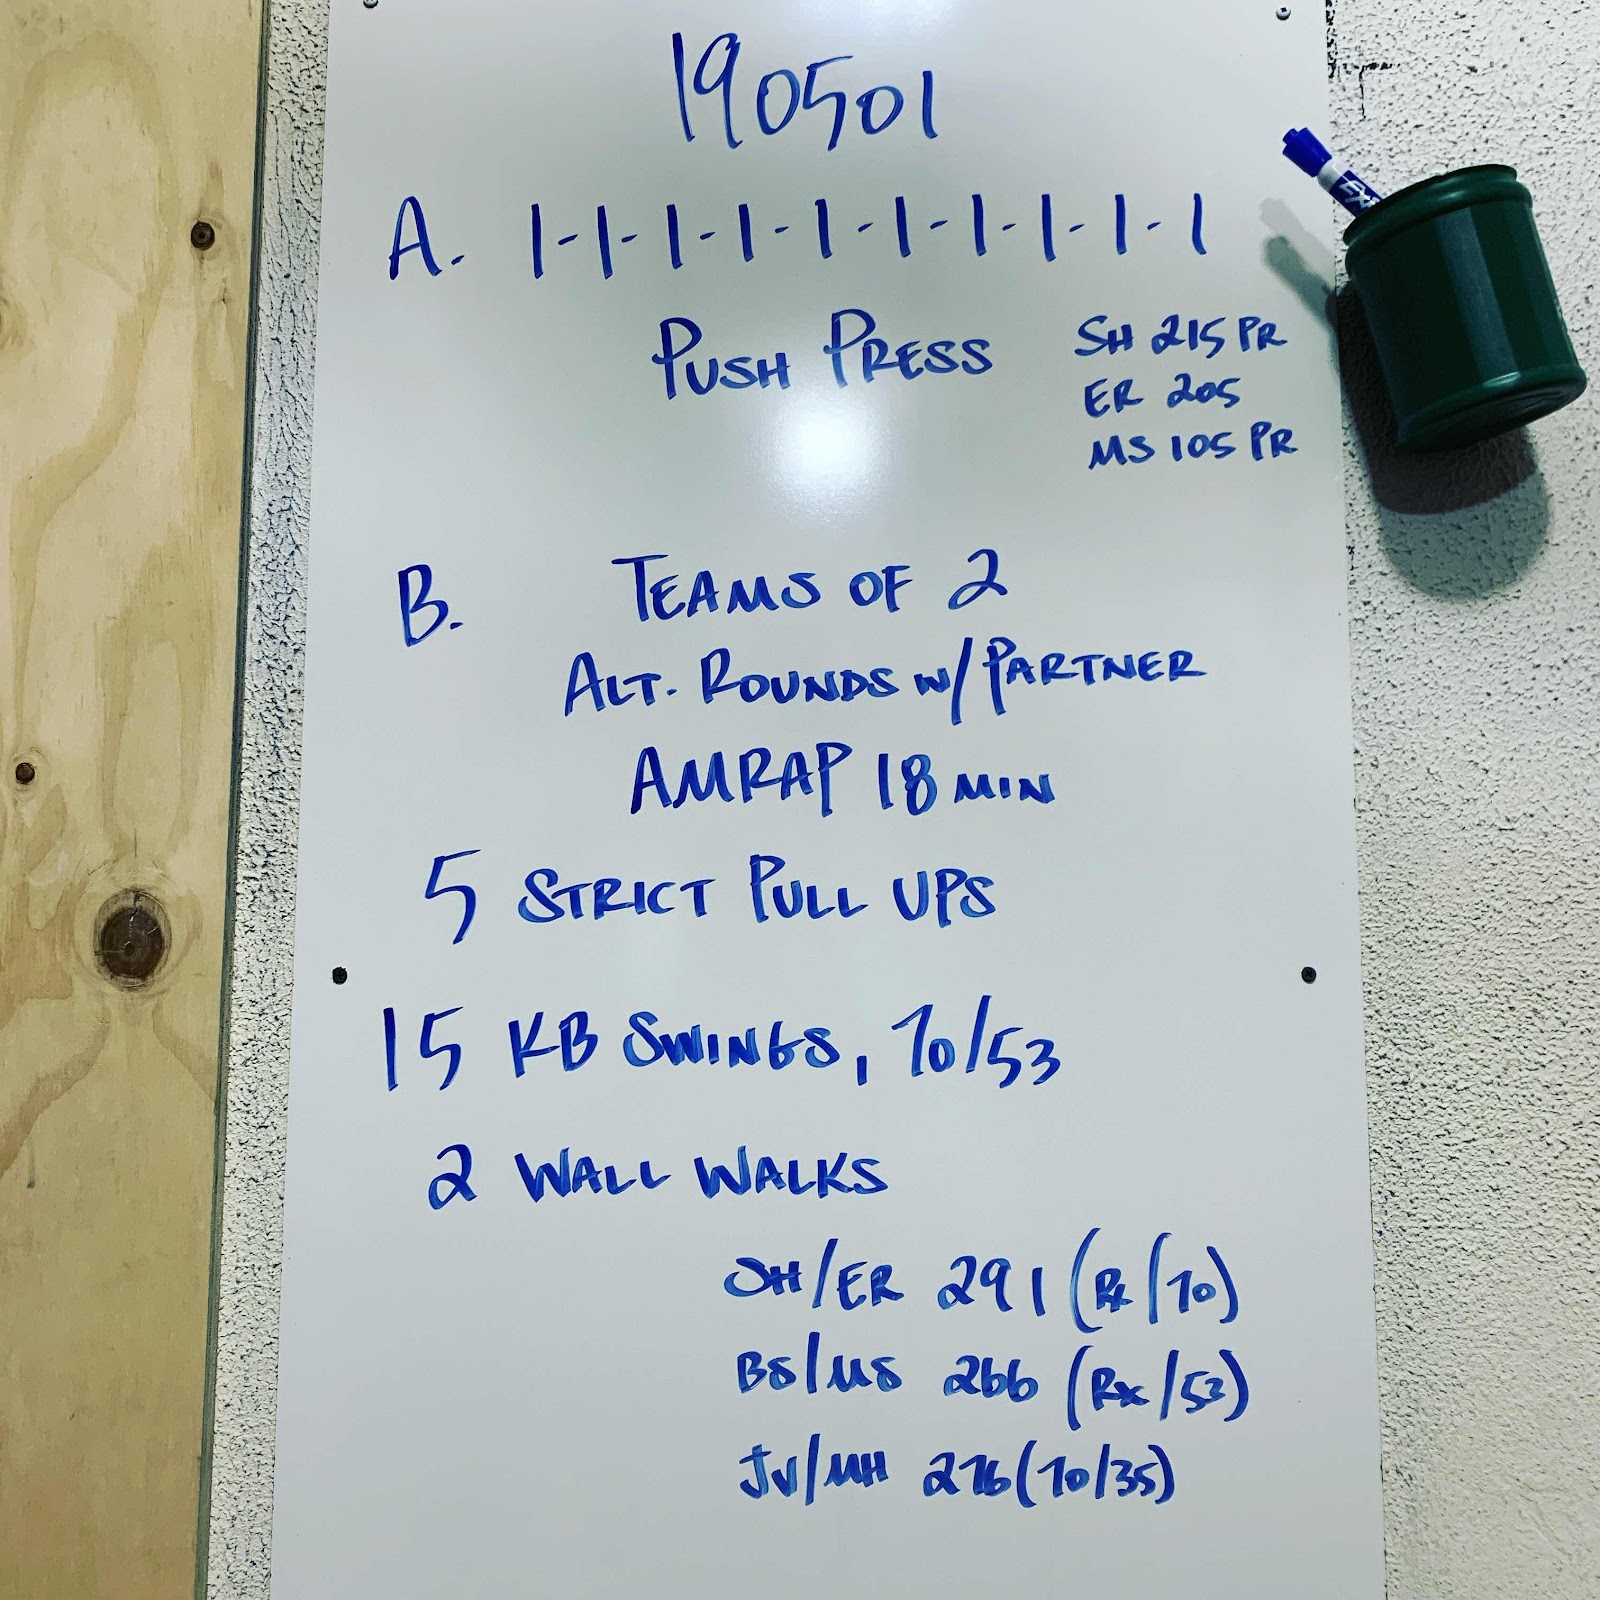 190501
A. 1-1-1-1-1-1-1-1-1-1
PUSH PRESS
SH 215 PR
ER 205
MS 105 PR
B. TEAMS OF 2
ALT. ROUNDS W/ PARTNER
AMRAP 18 MIN
5 STRICT PULL UPS
15 KB SWINGS, 70/53
2 WALL WALKS
SH/ER 291 (Rx/70)
BS/MS 266 (Rx/53)
JV/MH 276 (70/35)
EX